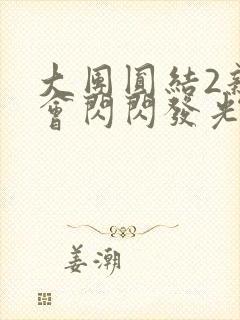 大團圓結2新
會閃閃發光
姜潮